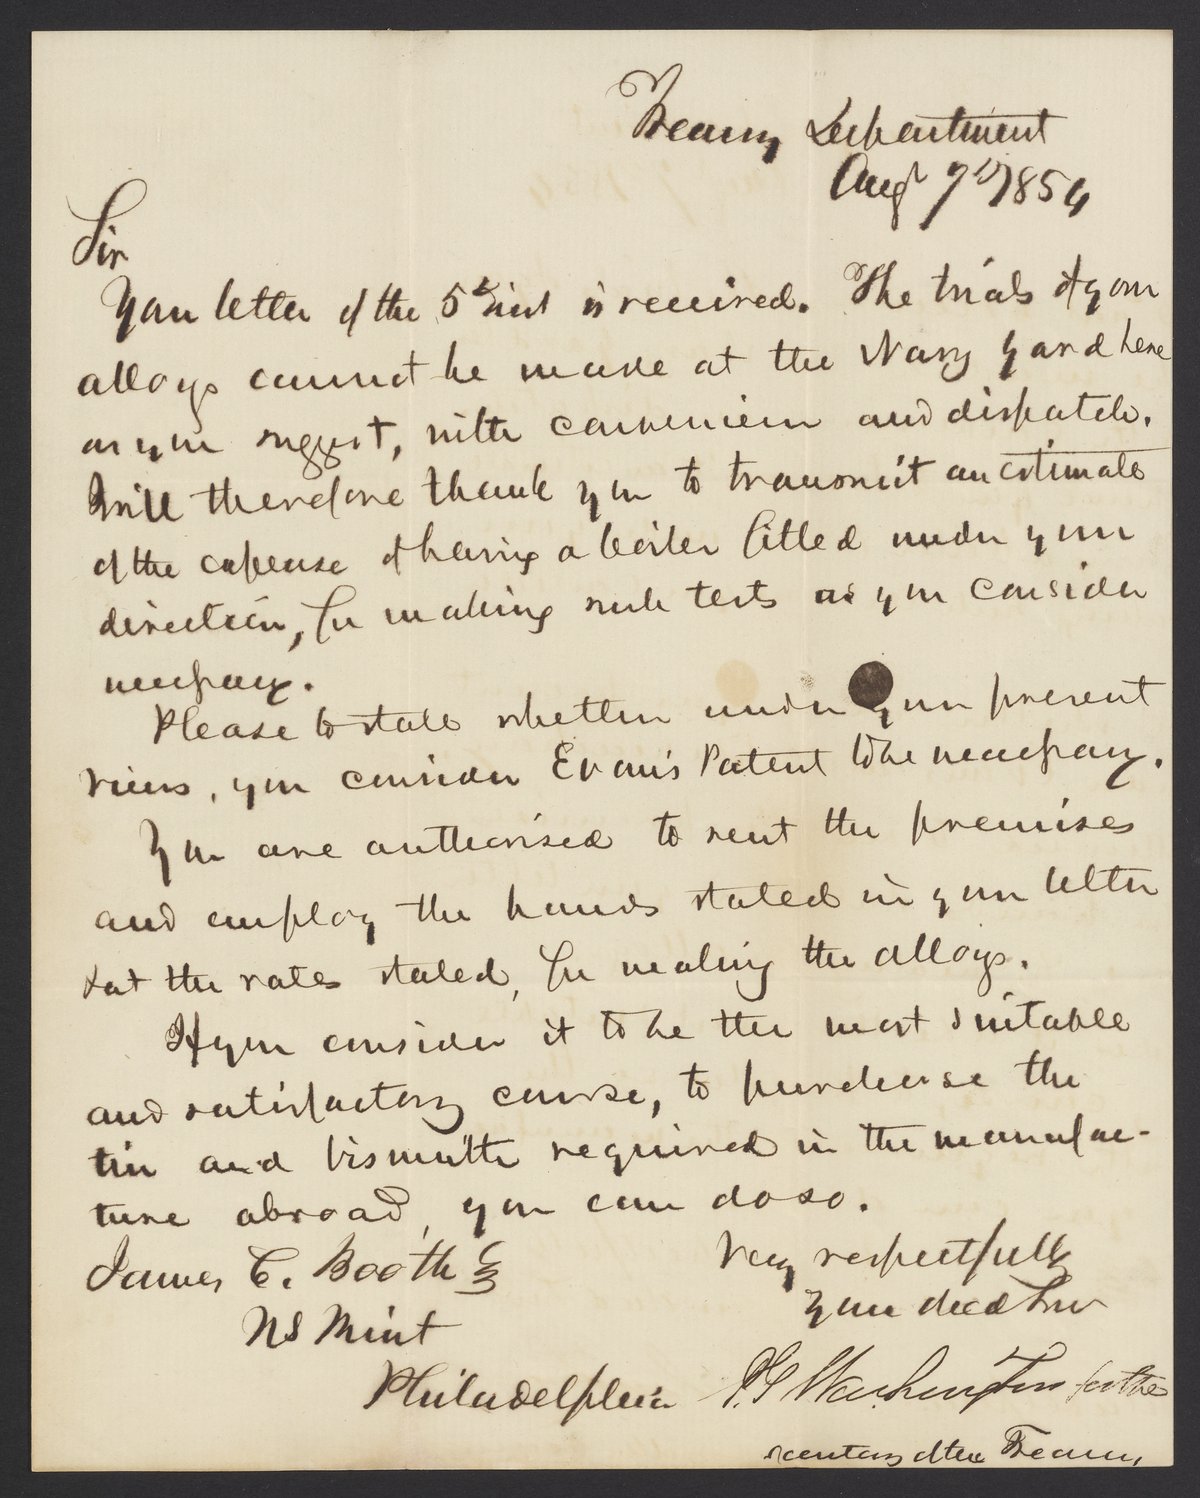 Treasury Department
Augt 7th 1854
Sir
Your letter of the 5th inst is received. The trials of your
alloys cannot be made at the Navy Yard here
as you suggest, with convenience and dispatch.
I will therefore thank you to transmit an estimate
of the expense of having a boiler fitted under your
direction, for making such tests as you consider
necessary.
Please to state whether under your present
views, you consider Evans's Patent to be necessary.
You are authorised to rent the premises
and employ the hands stated in your letter
& at the rates stated, for making the alloys.
If you consider it to be the most suitable
and satisfactory course, to purchase the
tin and bismuth required in the manufac-
ture abroad, you can do so.
Very respectfully
James C. Booth Esq
Your obed Serv
US Mint
Philadelphia
P.G Washington for the
secretary of the Treasury